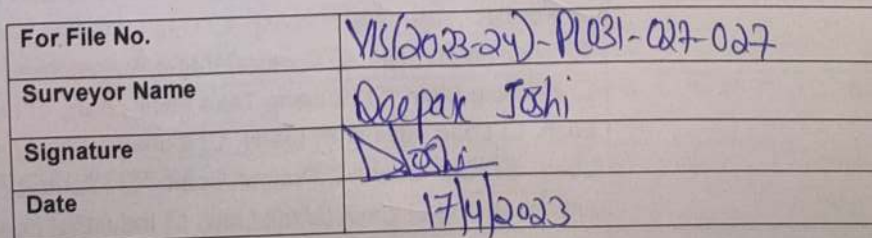 For File No. VIS(2023-24)-PL031-027-027
Surveyor Name Deepak Joshi
Signature DJoshi
Date 17/4/2023